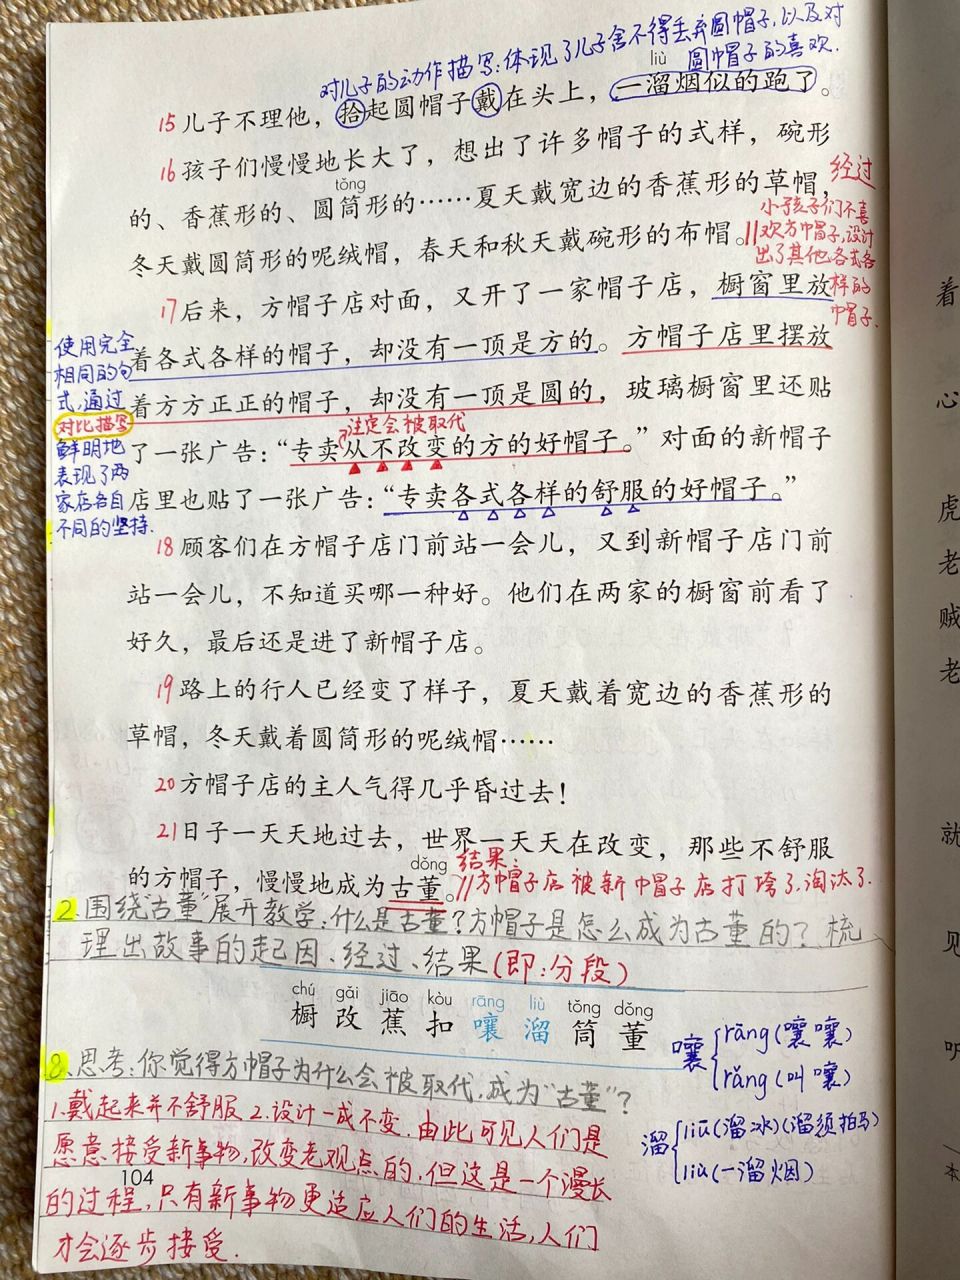 对儿子的动作描写:体现了儿子舍不得丢弃圆帽子,以及对
圆帽子的喜欢.
liù
15 儿子不理他，拾起圆帽子戴在头上，一溜烟似的跑了。
16 孩子们慢慢地长大了，想出了许多帽子的式样，碗形
tǒng
的、香蕉形的、圆筒形的……夏天戴宽边的香蕉形的草帽，
冬天戴圆筒形的呢绒帽，春天和秋天戴碗形的布帽。
经过
小孩子们不喜
//欢方巾冒子,设计
出了其他各式各
样的
巾冒子.
17 后来，方帽子店对面，又开了一家帽子店，橱窗里放
着各式各样的帽子，却没有一顶是方的。方帽子店里摆放
着方方正正的帽子，却没有一顶是圆的，玻璃橱窗里还贴
注定会被取代
了一张广告：“专卖从不改变的方的好帽子。”对面的新帽子
店里也贴了一张广告：“专卖各式各样的舒服的好帽子。”
使用完全
相同的句
式,通过
对比描写
鲜明地
表现了两
家店各自
不同的坚持.
18 顾客们在方帽子店门前站一会儿，又到新帽子店门前
站一会儿，不知道买哪一种好。他们在两家的橱窗前看了
好久，最后还是进了新帽子店。
19 路上的行人已经变了样子，夏天戴着宽边的香蕉形的
草帽，冬天戴着圆筒形的呢绒帽……
20 方帽子店的主人气得几乎昏过去！
21 日子一天天地过去，世界一天天在改变，那些不舒服
dǒng
的方帽子，慢慢地成为古董。
结果:
//方帽子店被新帽子店打垮了.淘汰了.
2.围绕“古董”展开教学:什么是古董?方帽子是怎么成为古董的?梳
理出故事的起因、经过、结果(即:分段)
chú gǎi jiāo kòu rāng liù tǒng dǒng
橱 改 蕉 扣 嚷 溜 筒 董
嚷{rāng(嚷嚷)
rǎng(叫嚷)
溜{liū(溜冰)(溜须拍马)
liù(一溜烟)
3.思考:你觉得方帽子为什么会被取代,成为“古董”?
1.戴起来并不舒服 2.设计一成不变.由此可见人们是
愿意接受新事物,改变老观点的,但这是一个漫长
104
的过程,只有新事物更适应人们的生活,人们
才会逐步接受.
着
心
虎
老
贼
老
就
见